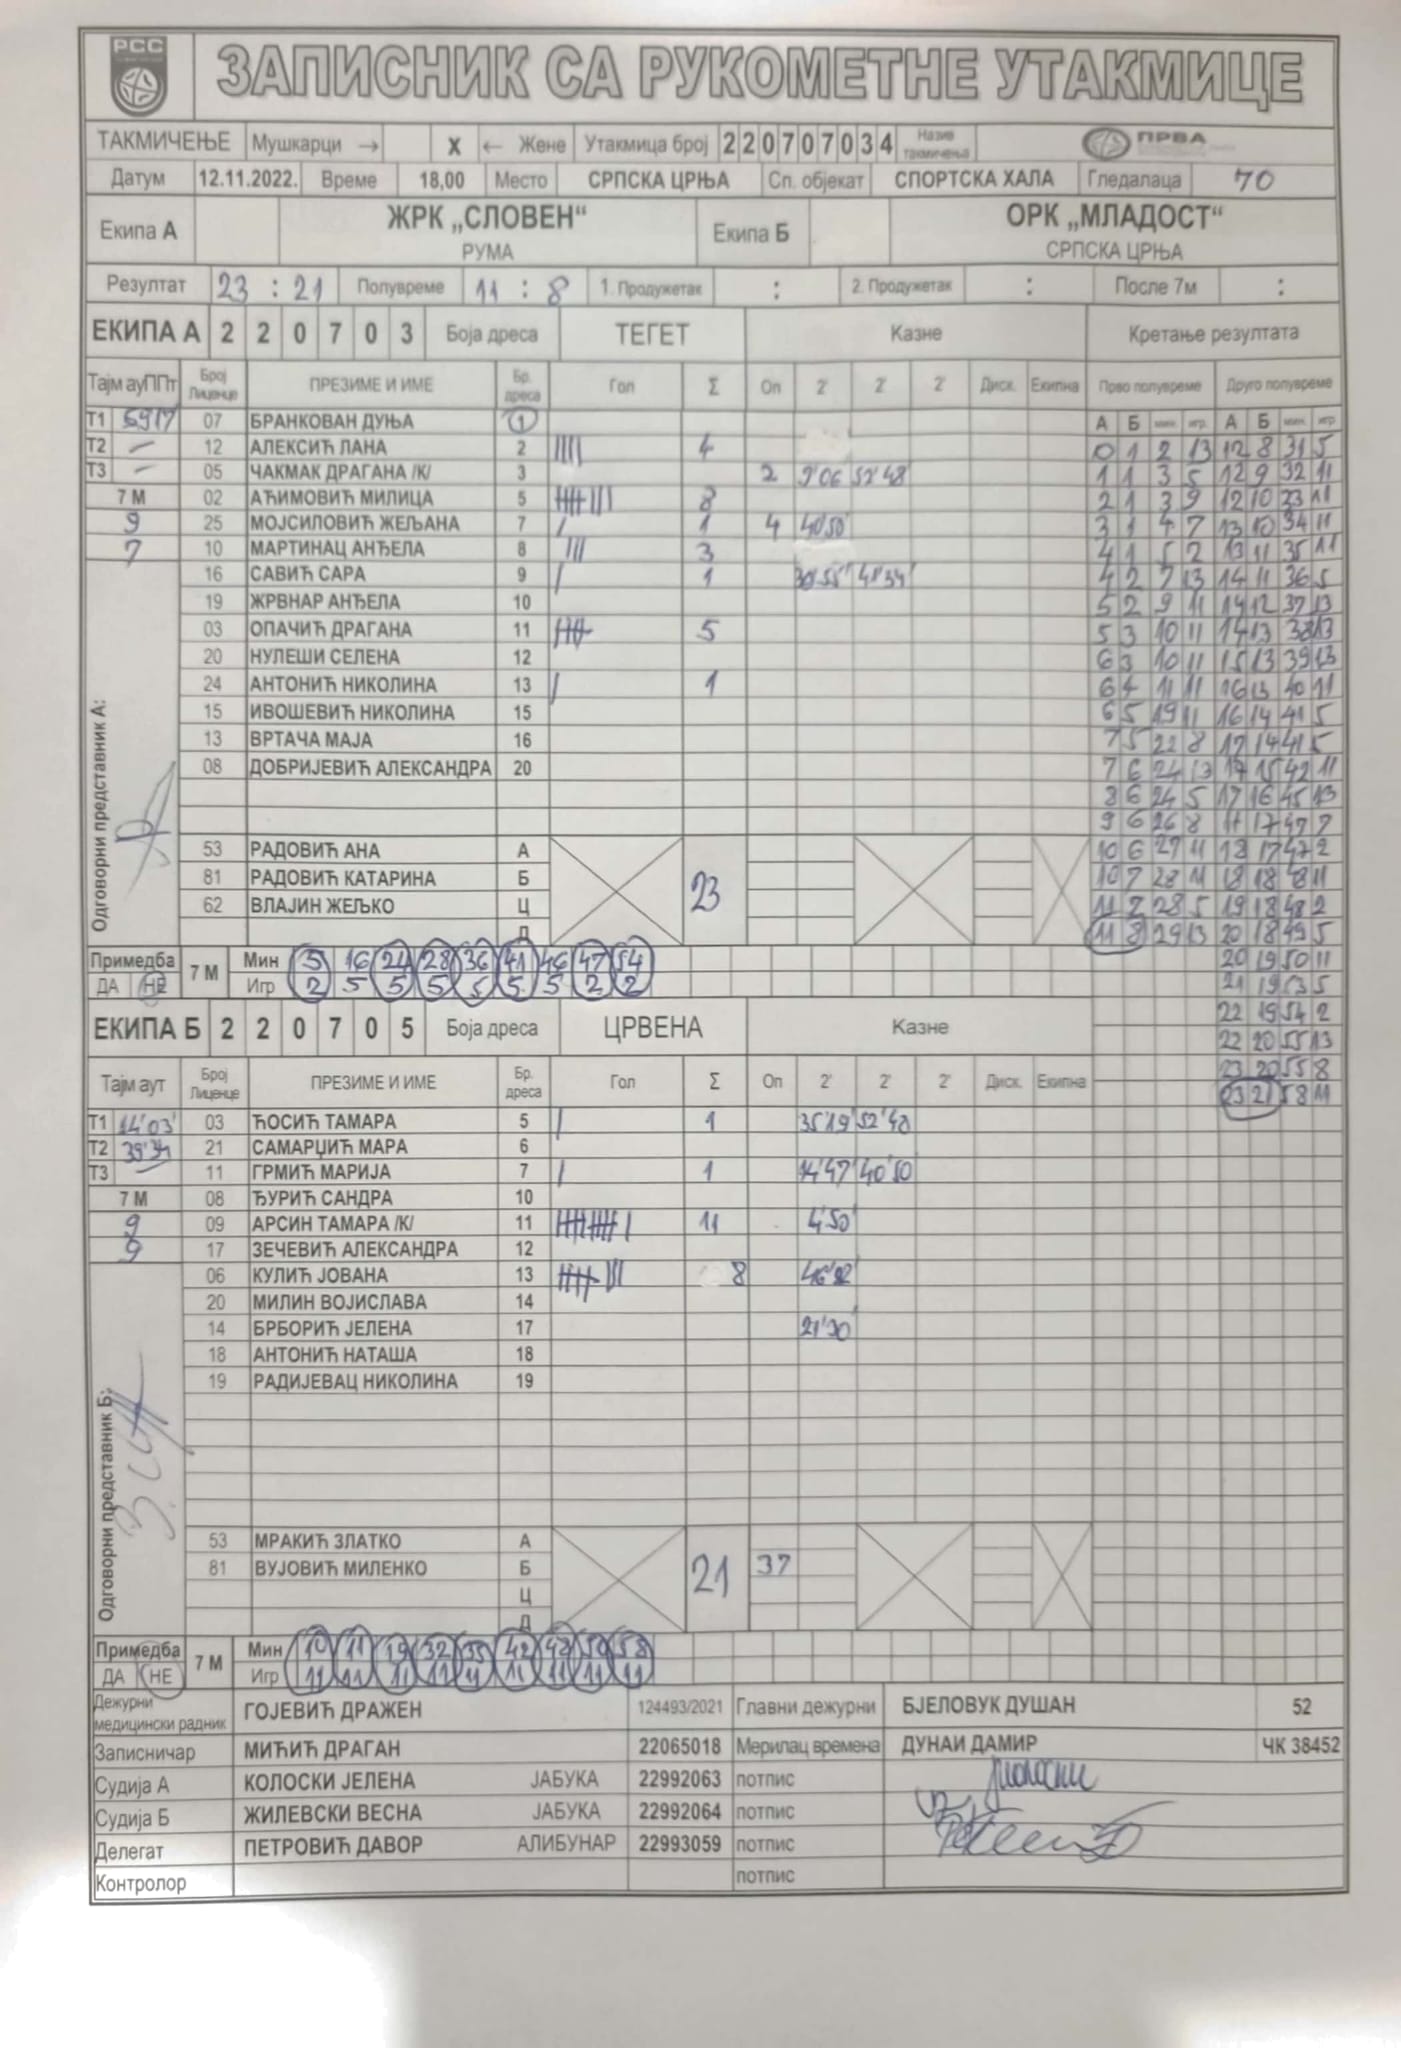 РСС
ЗАПИСНИК СА РУКОМЕТНЕ УТАКМИЦЕ
ТАКМИЧЕЊЕ Мушкарци → X ← Жене Утакмица број 220707034 Назив такмичења ПРВА
Датум 12.11.2022. Време 18,00 Место СРПСКА ЦРЊА Сп. објекат СПОРТСКА ХАЛА Гледалаца 70
Екипа А ЖРК „СЛОВЕН“ Екипа Б ОРК „МЛАДОСТ“
РУМА СРПСКА ЦРЊА
Резултат 23 : 21 Полувреме 11 : 8 1. Продужетак : 2. Продужетак : После 7м :
ЕКИПА А 2 2 0 7 0 3 Боја дреса ТЕГЕТ Казне Кретање резултата
Тајм ауППт Број Лиценце ПРЕЗИМЕ И ИМЕ Бр. дреса Гол Σ Оп 2' 2' 2' Диск. Екипна Прво полувреме Друго полувреме
Т1 59 17 07 БРАНКОВАН ДУЊА 1 А Б мин. игр. А Б мин. игр
Т2 – 12 АЛЕКСИЋ ЛАНА 2 |||| 4 0 1 2 13 12 8 31 5
Т3 – 05 ЧАКМАК ДРАГАНА /К/ 3 2 9'06 52'48 1 1 3 5 12 9 32 11
7 М 02 АЋИМОВИЋ МИЛИЦА 5 8 2 1 3 9 12 10 23 11
9 25 МОЈСИЛОВИЋ ЖЕЉАНА 7 | 1 4 40'50' 3 1 4 7 13 10 34 11
7 10 МАРТИНАЦ АНЂЕЛА 8 ||| 3 4 1 5 2 13 11 35 11
16 САВИЋ САРА 9 | 1 30'55' 4 2 7 13 14 11 36 5
19 ЖРВНАР АНЂЕЛА 10 5 2 9 11 14 12 37 13
03 ОПАЧИЋ ДРАГАНА 11 5 5 3 10 11 14 13 38 13
20 НУЛЕШИ СЕЛЕНА 12 6 3 10 11 15 13 39 13
24 АНТОНИЋ НИКОЛИНА 13 | 1 6 4 11 11 16 13 40 11
15 ИВОШЕВИЋ НИКОЛИНА 15 6 5 19 11 16 14 41 5
13 ВРТАЧА МАЈА 16 7 5 22 8 17 14 41 5
08 ДОБРИЈЕВИЋ АЛЕКСАНДРА 20 7 6 24 13 17 15 42 11
8 6 24 5 17 16 45 13
9 6 26 8 17 17 47 7
Одговорни представник А:
53 РАДОВИЋ АНА А 10 6 27 11 18 17 47 2
81 РАДОВИЋ КАТАРИНА Б 23 10 7 28 11 18 18 8 11
62 ВЛАЈИН ЖЕЉКО Ц 11 7 28 5 19 18 48 2
Д 11 8 29 13 20 18 49 5
Примедба 7 М Мин 3 16 24 28 36 41 46 47 54 20 19 50 11
ДА НЕ Игр 2 5 5 5 5 5 5 2 2 21 19 53 5
22 19 54 2
ЕКИПА Б 2 2 0 7 0 5 Боја дреса ЦРВЕНА Казне 22 20 55 13
Тајм аут Број Лиценце ПРЕЗИМЕ И ИМЕ Бр. дреса Гол Σ Оп 2' 2' 2' Диск. Екипна 23 20 55 8
23 21 58 11
Т1 14'03' 03 ЋОСИЋ ТАМАРА 5 | 1 35'19' 52'48
Т2 39'34 21 САМАРЏИЋ МАРА 6
Т3 – 11 ГРМИЋ МАРИЈА 7 | 1 14'47' 40'50'
7 М 08 ЂУРИЋ САНДРА 10
9 09 АРСИН ТАМАРА /К/ 11 11 4'50'
9 17 ЗЕЧЕВИЋ АЛЕКСАНДРА 12
06 КУЛИЋ ЈОВАНА 13 8
20 МИЛИН ВОЈИСЛАВА 14
14 БРБОРИЋ ЈЕЛЕНА 17 21'30'
18 АНТОНИЋ НАТАША 18
19 РАДИЈЕВАЦ НИКОЛИНА 19
Одговорни представник Б:
53 МРАКИЋ ЗЛАТКО А
81 ВУЈОВИЋ МИЛЕНКО Б 21 37
Ц
Д
Примедба 7 М Мин 10 11 19 32 35 42 48 50 58
ДА НЕ Игр 11 11 11 11 11 11 11 11 11
Дежурни медицински радник ГОЈЕВИЋ ДРАЖЕН 124493/2021 Главни дежурни БЈЕЛОВУК ДУШАН 52
Записничар МИЋИЋ ДРАГАН 22065018 Мерилац времена ДУНАИ ДАМИР ЧК 38452
Судија А КОЛОСКИ ЈЕЛЕНА ЈАБУКА 22992063 потпис
Судија Б ЖИЛЕВСКИ ВЕСНА ЈАБУКА 22992064 потпис
Делегат ПЕТРОВИЋ ДАВОР АЛИБУНАР 22993059 потпис
Контролор потпис